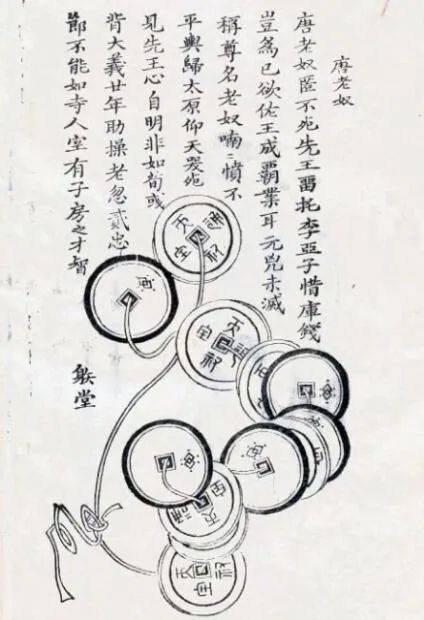 唐老奴
唐老奴匿不死先王畱托李亞子惜庫錢
豈為已欲佐王成霸業耳元兇未滅
稱尊名老奴喃〻憤不
平輿歸太原仰天哭死
見先王心自明非如荀彧
背大義廿年助操老忽貳忠
節不能如寺人室有子房之才智
堂